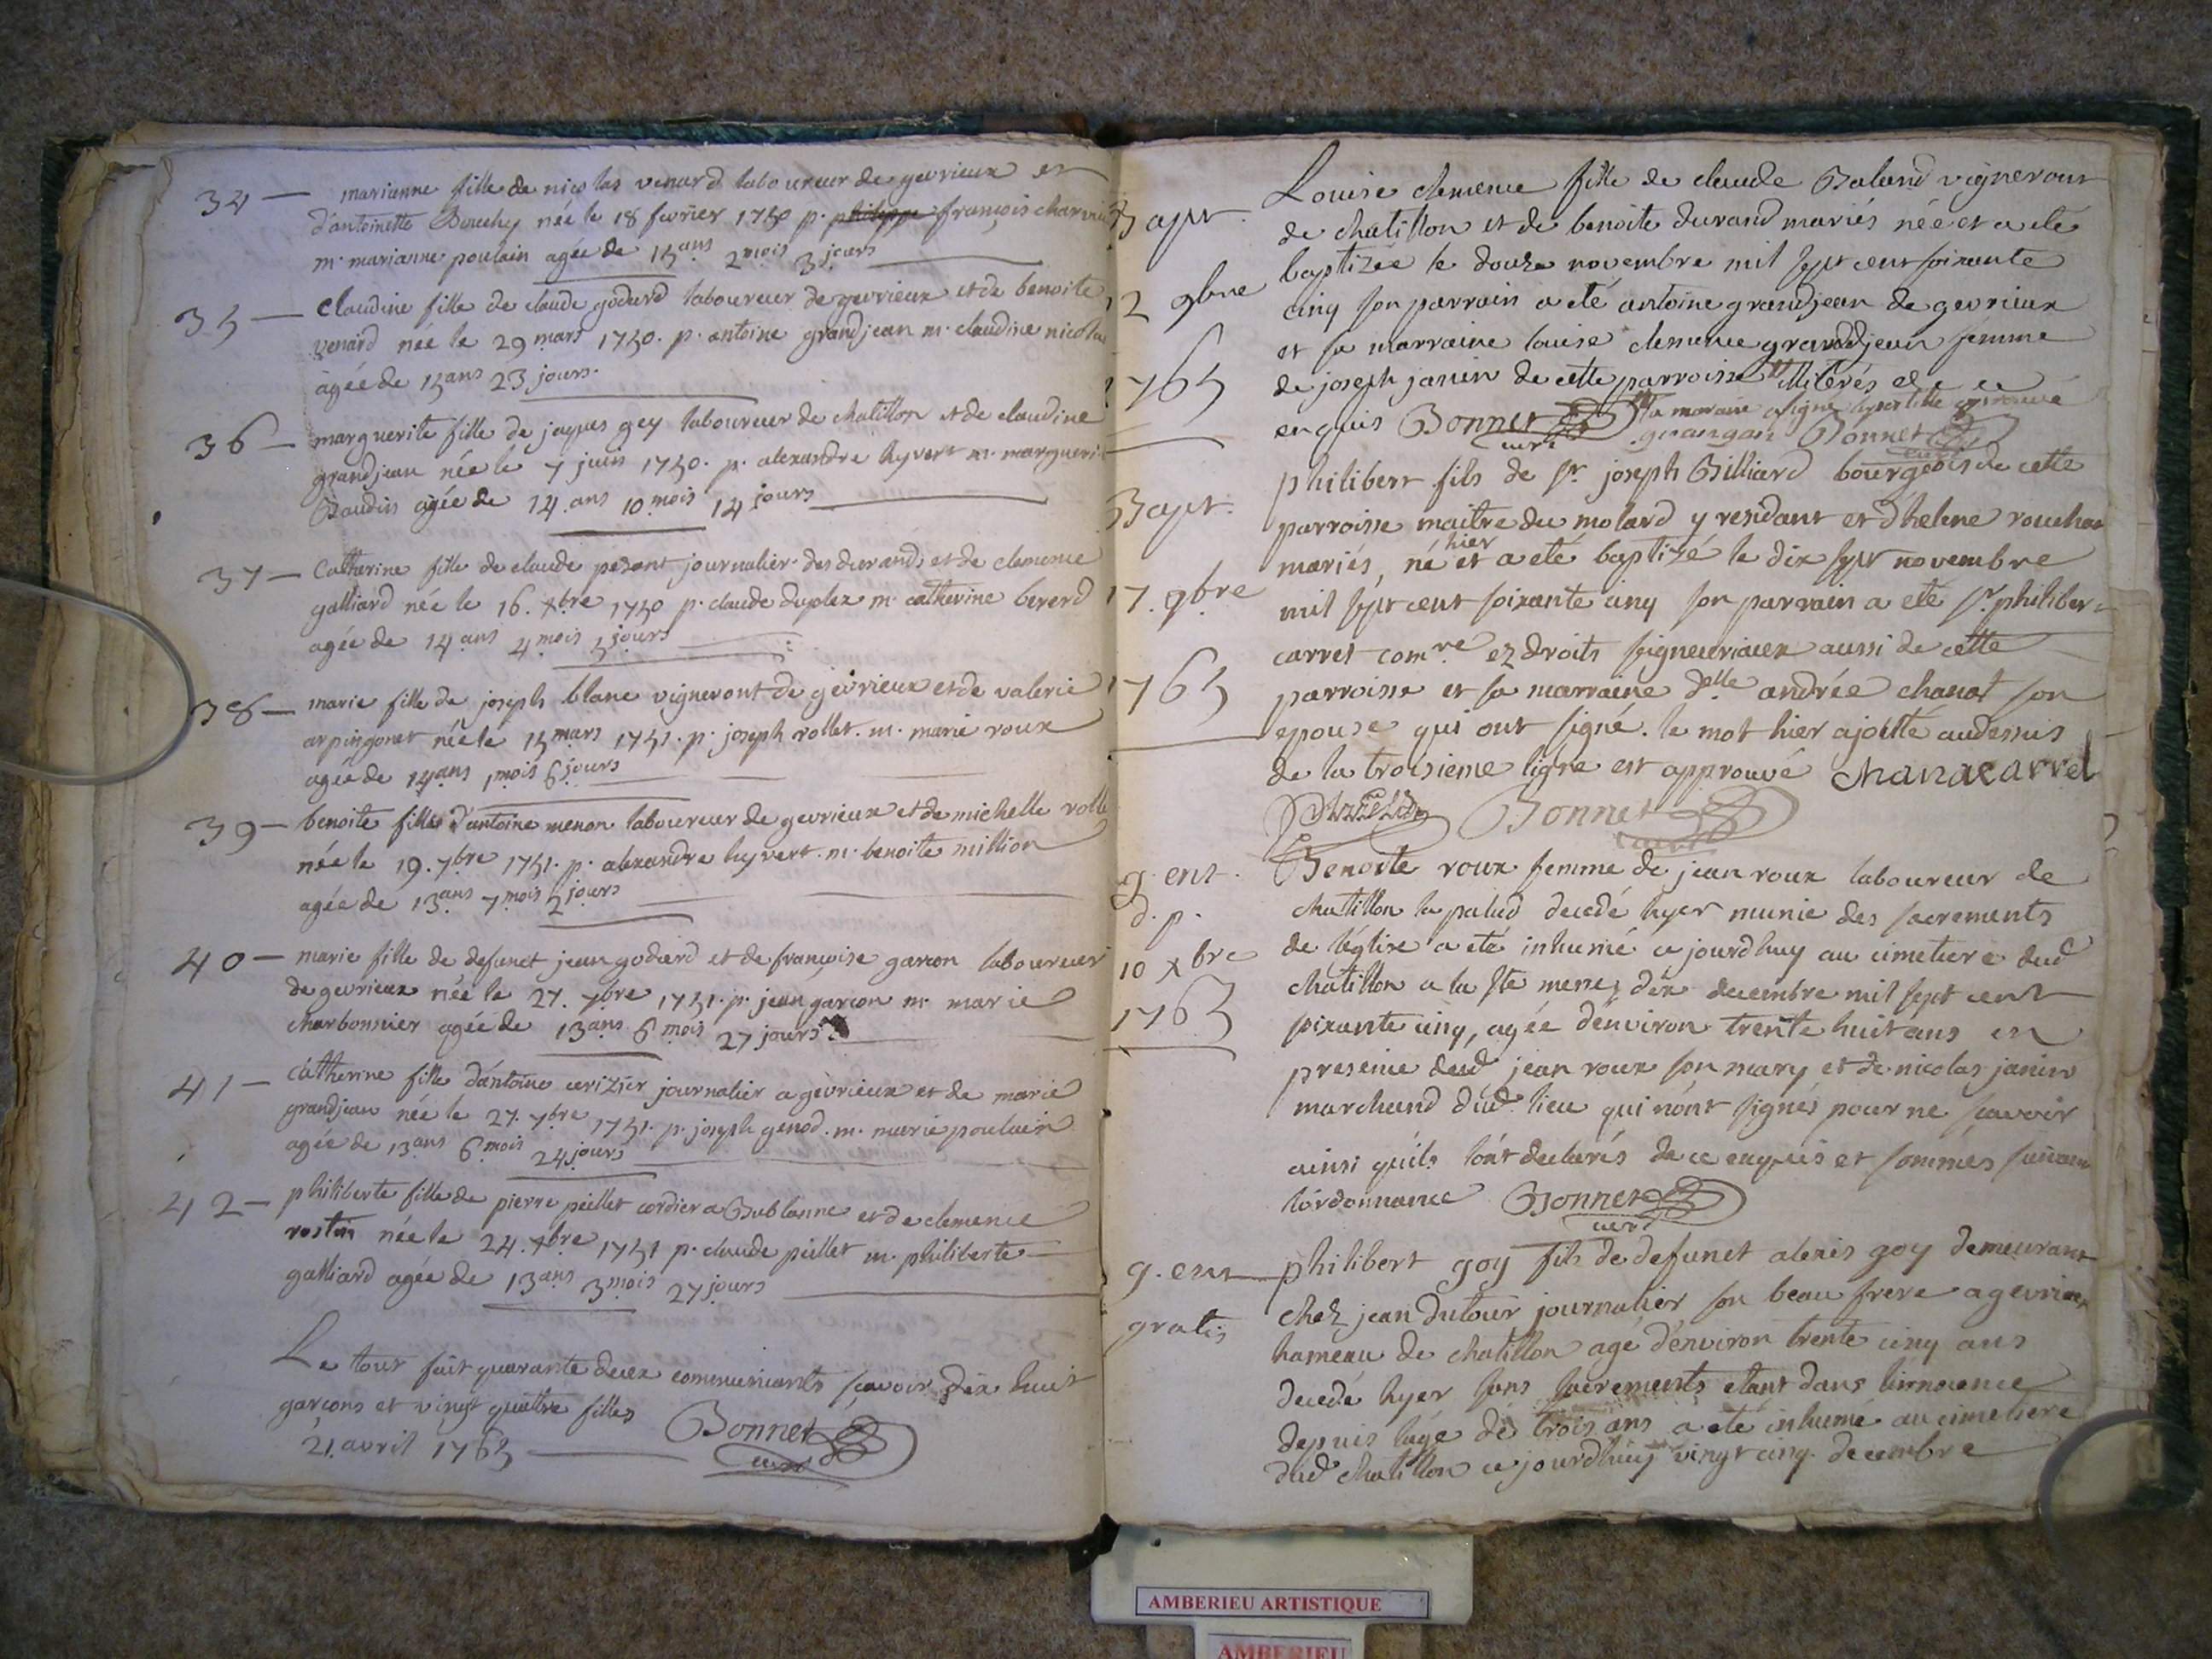 34 — marianne fille de nicolas venard laboureur de gevrieux et
d'antoinette Bouchy née le 18 fevrier 1750 p. philippe françois charvin
m. marianne poulain agée de 15 ans 2 mois 3 jours
35 — Claudine fille de claude godard laboureur de gevrieux et de benoite
venard née le 29 mars 1750. p. antoine grandjean m. claudine nicolas
agée de 15 ans 23 jours.
36 — marguerite fille de jaques gey laboureur de chatillon et de claudine
grandjean née le 7 juin 1750. p. alexandre hyvert m. marguerit
Baudin agée de 14 ans 10 mois 14 jours
37 — Catherine fille de claude pesant journalier des durands et de clemence
galliard née le 16. xbre 1750 p. claude duplex m. catherine bererd
agée de 14 ans 4 mois 5 jours
38 — marie fille de joseph blanc vigneront de gevrieux et de valerie
arpingonet née le 15 mars 1751. p. joseph rollet. m. marie roux
agée de 14 ans 1 mois 6 jours
39 — benoite fille d'antoine menon laboureur de gevrieux et de michelle rolle
née le 19. 7bre 1751. p. alexandre hyvert. m. benoite million
agée de 13 ans 7 mois 2 jours
40 — marie fille de defunct jean godard et de françoise garcon laboureur
de gevrieux née le 27. 7bre 1751. p. jean garcon m. marie
charbonnier agée de 13 ans 6 mois 27 jours
41 — Catherine fille d'antoine cerizier journalier a gevrieux et de marie
grandjean née le 27. 7bre 1751. p. joseph genod. m. marie poulain
agée de 13 ans 6 mois 24 jours
42 — philiberte fille de pierre pillet cordier a Bublanne et de clemence
rostin née le 24. xbre 1751 p. claude pillet m. philiberte
galliard agée de 13 ans 3 mois 27 jours
Le tout fait quarante deux communiants sçavoir dix huit
garçons et vingt quattre filles Bonnet
21. avril 1765 curé
Bapt. Louise clemence fille de claude Baland vigneront
de chatillon et de benoite durand mariés née et a eté
baptizée le douze novembre mil sept cent soixante
2 9bre cinq son parrain a eté antoine grandjean de gevrieux
et sa marraine louise clemence granddjean femme
1765 de joseph janin de cette parroisse illiterés de ce
enquis Bonnet curé la maraine a signé
grangan Bonnet curé
philibert fils de Sr. joseph Billiard bourgeois de cette
Bapt. parroisse maitre du molard y residant et d'helene rouchon
hier
mariés, né et a eté baptizé le dix sept novembre
17. 9bre mil sept cent soixante cinq son parrain a eté Sr. philiber
carrel comre ez droits seigneuriaux aussi de cette
1765 parroisse et sa marraine delle andrée chanat son
epouse qui ont signé. le mot hier ajoutté audessus
de la troisieme ligne est approuvé Chana Carrel
Bonnet curé
g. ent. Benoite roux femme de jean roux laboureur de
d. p. chatillon la palud decedé hyer munie des sacrements
10 xbre de l'église a eté inhumé ce jourdhuy au cimetiere dud
chatillon a la ste messe, dix decembre mil sept cent
1765 soixante cinq, agée d'environ trente huit ans en
presence dud jean roux son mary et de nicolas janin
marchand dud. lieu qui n'ont signés pour ne sçavoir
ainsi qu'ils l'ont declarés de ce enquis et sommés suivant
l'ordonnance Bonnet curé
g. ent. philibert goy fils de defunct alexis goy demeurant
gratis chez jean dutour journalier son beau frere a gevrieux
hameau de chatillon agé d'environ trente cinq ans
decedé hyer sans sacrements etant dans l'innocence
depuis l'âge de trois ans a eté inhumé au cimetiere
dud chatillon ce jourdhuy vingt cinq decembre
AMBERIEU ARTISTIQUE
AMBERIEU